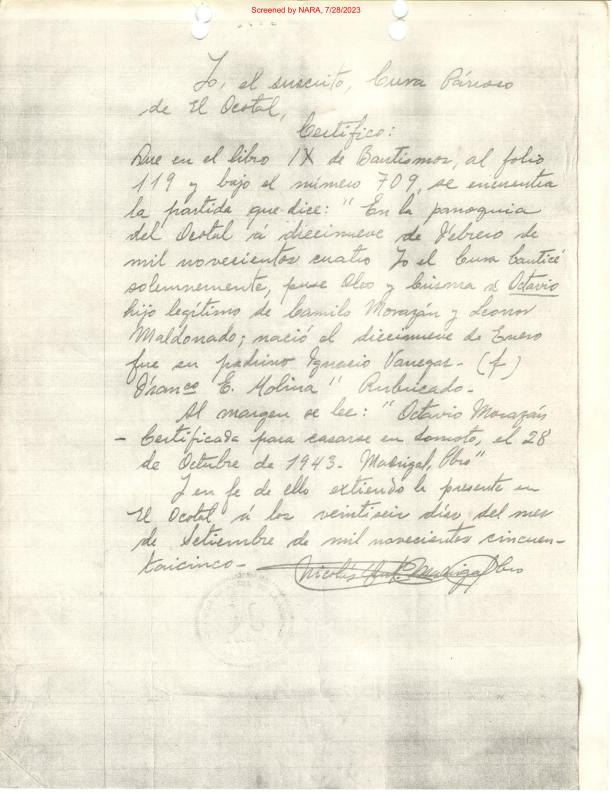 Screened by NARA, 7/28/2023
Yo, el suscrito, Cura Párroco
de El Ocotal,
Certifico:
Que en el libro IX de Bautismos, al folio
119 y bajo el número 709, se encuentra
la partida que dice: "En la parroquia
del Ocotal á diecinueve de Febrero de
mil novecientos cuatro Yo el Cura bauticé
solemnemente, puse Oleo y Crisma á Octavio
hijo legítimo de Camilo Morazán y Leonor
Maldonado; nació el diecinueve de Enero
fue su padrino Ignacio Vanegas - (f)
Franco E. Molina" Rubricado -
Al margen se lee: "Octavio Morazán
- Certificada para casarse en Somoto, el 28
de Octubre de 1943 - Madrigal, Pbro"
Y en fe de ello extiendo la presente en
El Ocotal á los veintiseis días del mes
de Setiembre de mil novecientos cincuen-
taicinco -
Nicolás Madrigal Pbro